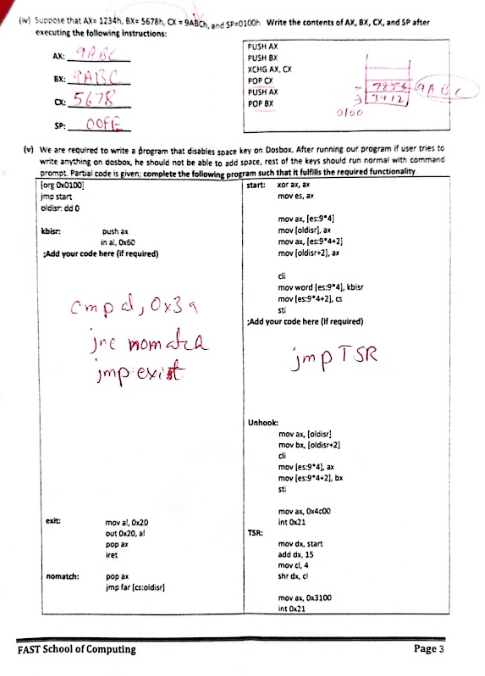 (iv) Suppose that AX= 1234h, BX= 5678h, CX = 9ABCh, and SP=0100h Write the contents of AX, BX, CX, and SP after
executing the following instructions:
AX: 9ABC
BX: 9ABC
CX: 5678
SP: 00FE
PUSH AX
PUSH BX
XCHG AX, CX
POP CX
PUSH AX
POP BX
9ABC
3412
0100
(v) We are required to write a program that disables space key on Dosbox. After running our program if user tries to
write anything on dosbox, he should not be able to add space, rest of the keys should run normal with command
prompt. Partial code is given; complete the following program such that it fulfills the required functionality
[org 0x0100]
jmp start
oldisr: dd 0
kbisr: push ax
in al, 0x60
;Add your code here (if required)
cmp al, 0x39
jne nomatch
jmp exist
exit: mov al, 0x20
out 0x20, al
pop ax
iret
nomatch: pop ax
jmp far [cs:oldisr]
start: xor ax, ax
mov es, ax
mov ax, [es:9*4]
mov [oldisr], ax
mov ax, [es:9*4+2]
mov [oldisr+2], ax
cli
mov word [es:9*4], kbisr
mov [es:9*4+2], cs
sti
;Add your code here (if required)
jmp TSR
Unhook:
mov ax, [oldisr]
mov bx, [oldisr+2]
cli
mov [es:9*4], ax
mov [es:9*4+2], bx
sti
mov ax, 0x4c00
int 0x21
TSR:
mov dx, start
add dx, 15
mov cl, 4
shr dx, cl
mov ax, 0x3100
int 0x21
FAST School of Computing
Page 3